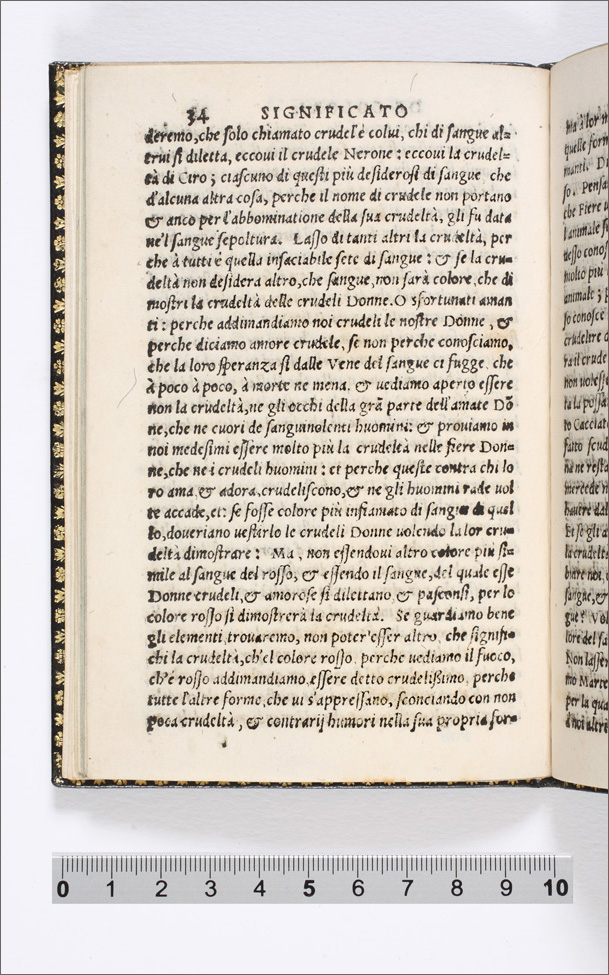 34 SIGNIFICATO
deremo, che solo chiamato crudel'è colui, chi di sangue al=
trui si diletta, eccoui il crudele Nerone: eccoui la crudel=
tà di Ciro; ciascuno di questi più desiderosi di sangue che
d'alcuna altra cosa, perche il nome di crudele non portano
& anco per l'abbominatione della sua crudeltà, gli fu data
ne'l sangue sepoltura. Lasso di tanti altri la crudeltà, per
che à tutti é quella insaciabile sete di sangue: & se la cru=
deltà non desidera altro, che sangue, non sarà colore, che di
mostri la crudeltà delle crudeli Donne. O sfortunati aman
ti: perche addimandiamo noi crudeli le nostre Donne, &
perche diciamo amore crudele, se non perche conosciamo,
che la loro speranza si dalle Vene del sangue ci fugge che
à poco à poco, à morte ne mena. & uediamo aperto essere
non la crudeltà, ne gli occhi della grã parte dell'amate Dõ
ne, che ne cuori de sanguinolenti huomini: & prouiamo in
noi medesimi essere molto più la crudeltà nelle fiere Don=
ne, che ne i crudeli huomini: et perche queste contra chi lo
ro ama, & adora, crudeliscono, & ne gli huomini rade uol
te accade, et: se fosse colore più infiamato di sangue di quel
lo, doueriano uestirlo le crudeli Donne uolendo la lor cru=
deltà dimostrare: Ma, non essendoui altro colore più si=
mile al sangue del rosso, & essendo il sangue, del quale esse
Donne crudeli, & amorose si dilettano, & pasconsi, per lo
colore rosso si dimostrerà la crudeltà. Se guardiamo bene
gli elementi, trouaremo, non poter'esser altro, che signifi=
chi la crudeltà, ch'el colore rosso, perche uediamo il fuoco,
ch'è rosso addimandiamo, essere detto crudelißimo, perche
tutte l'altre forme, che ui s'appressano, sconciando con non
poca crudeltà, & contrarij humori nella sua propria for=